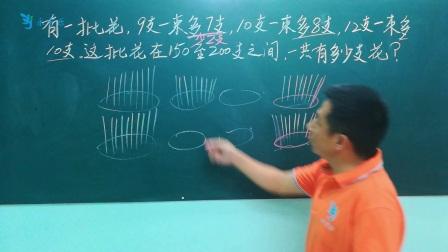 有一批花,9支一束多7支,10支一束多8支,12支一束多
10支.这批花在150至200支之间,一共有多少支花?